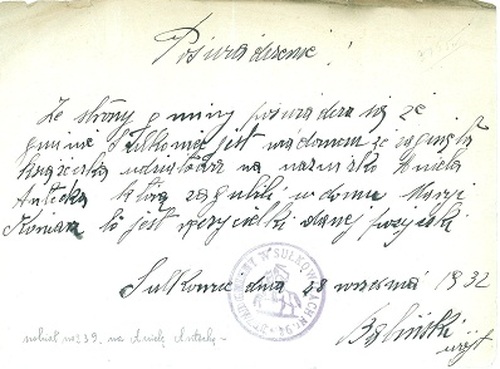 Poświadczenie!
Ze strony gminy poświadcza się że
gminie Sułkowice jest wiadomem że zaginęła
książeczka udziałowa na nazwisko Aniela
Antecka którą zagubili w domu Maryi
Koniarz to jest w danej pożyczki
Sułkowice dnia 28 września 1932
URZĄD GMINNY W SUŁKOWICACH
Bęliński
wójt
udział nr 239 na Anielę Antecką -